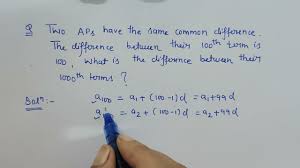 Q Two APs have the same common difference.
The difference between their 100th term is
100, what is the difference between their
1000th terms ?
Solⁿ:- a100 = a1 + (100-1)d = a1 + 99d
a = a2 + (100-1)d = a2 + 99d